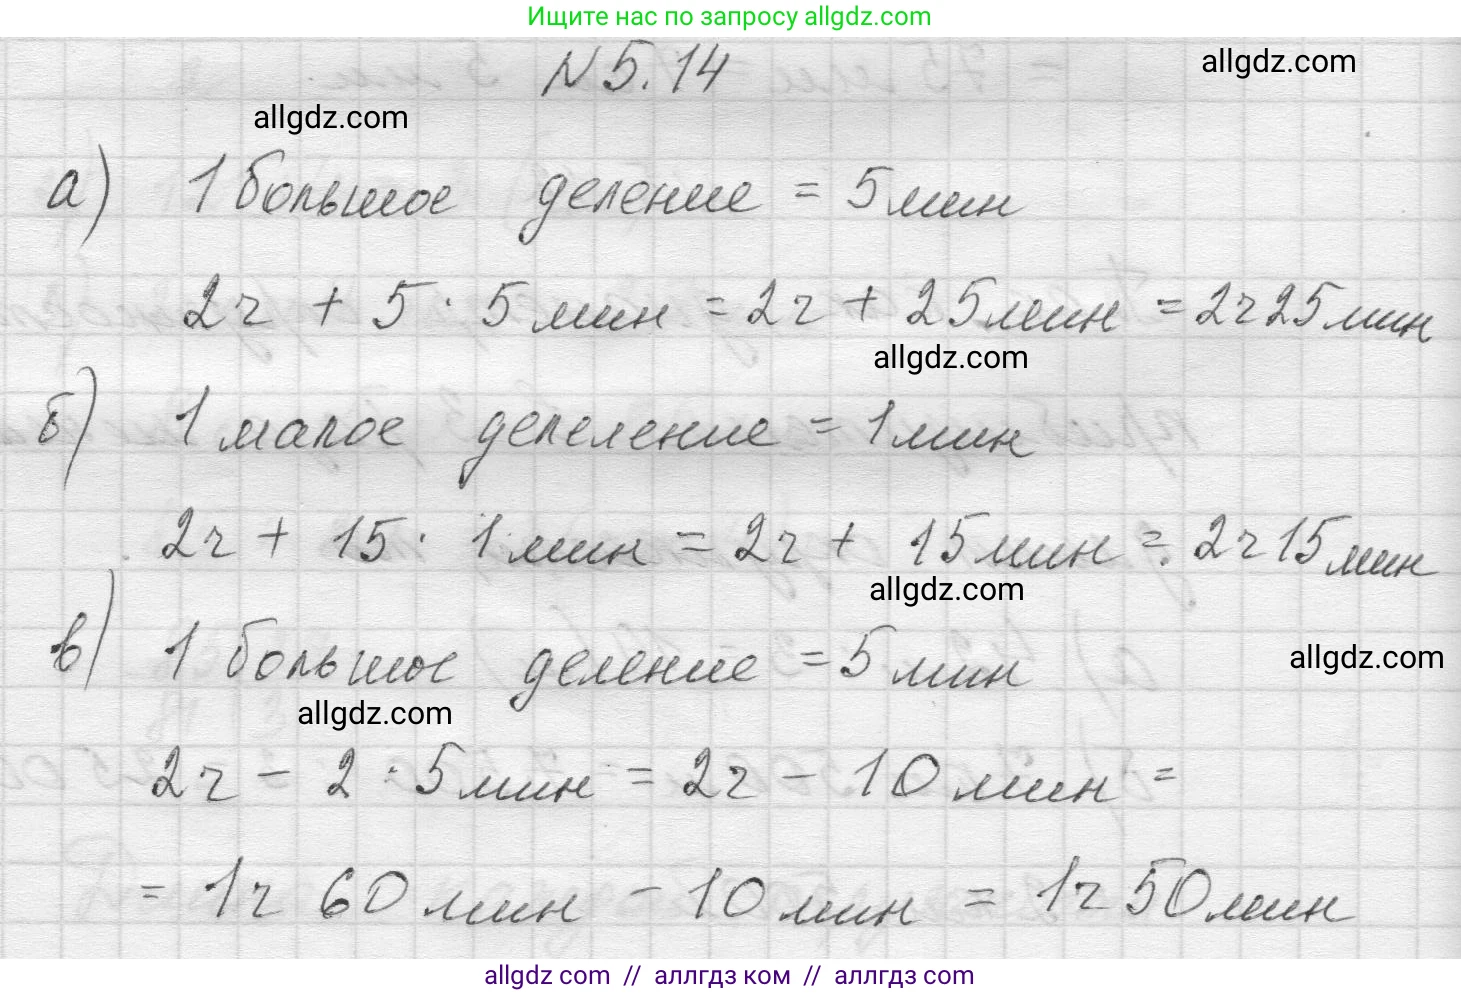 Ищите нас по запросу allgdz.com
N 5.14
allgdz.com
allgdz.com
а) 1 большое деление = 5 мин
2ч + 5 · 5 мин = 2ч + 25 мин = 2ч 25 мин
allgdz.com
б) 1 малое депеление = 1 мин
2ч + 15 · 1 мин = 2ч + 15 мин = 2ч 15 мин
allgdz.com
в) 1 большое деление = 5 мин
allgdz.com
allgdz.com
2ч - 2 · 5 мин = 2ч - 10 мин =
= 1ч 60 мин - 10 мин = 1ч 50 мин
allgdz com // аллгдз ком // аллгдз com